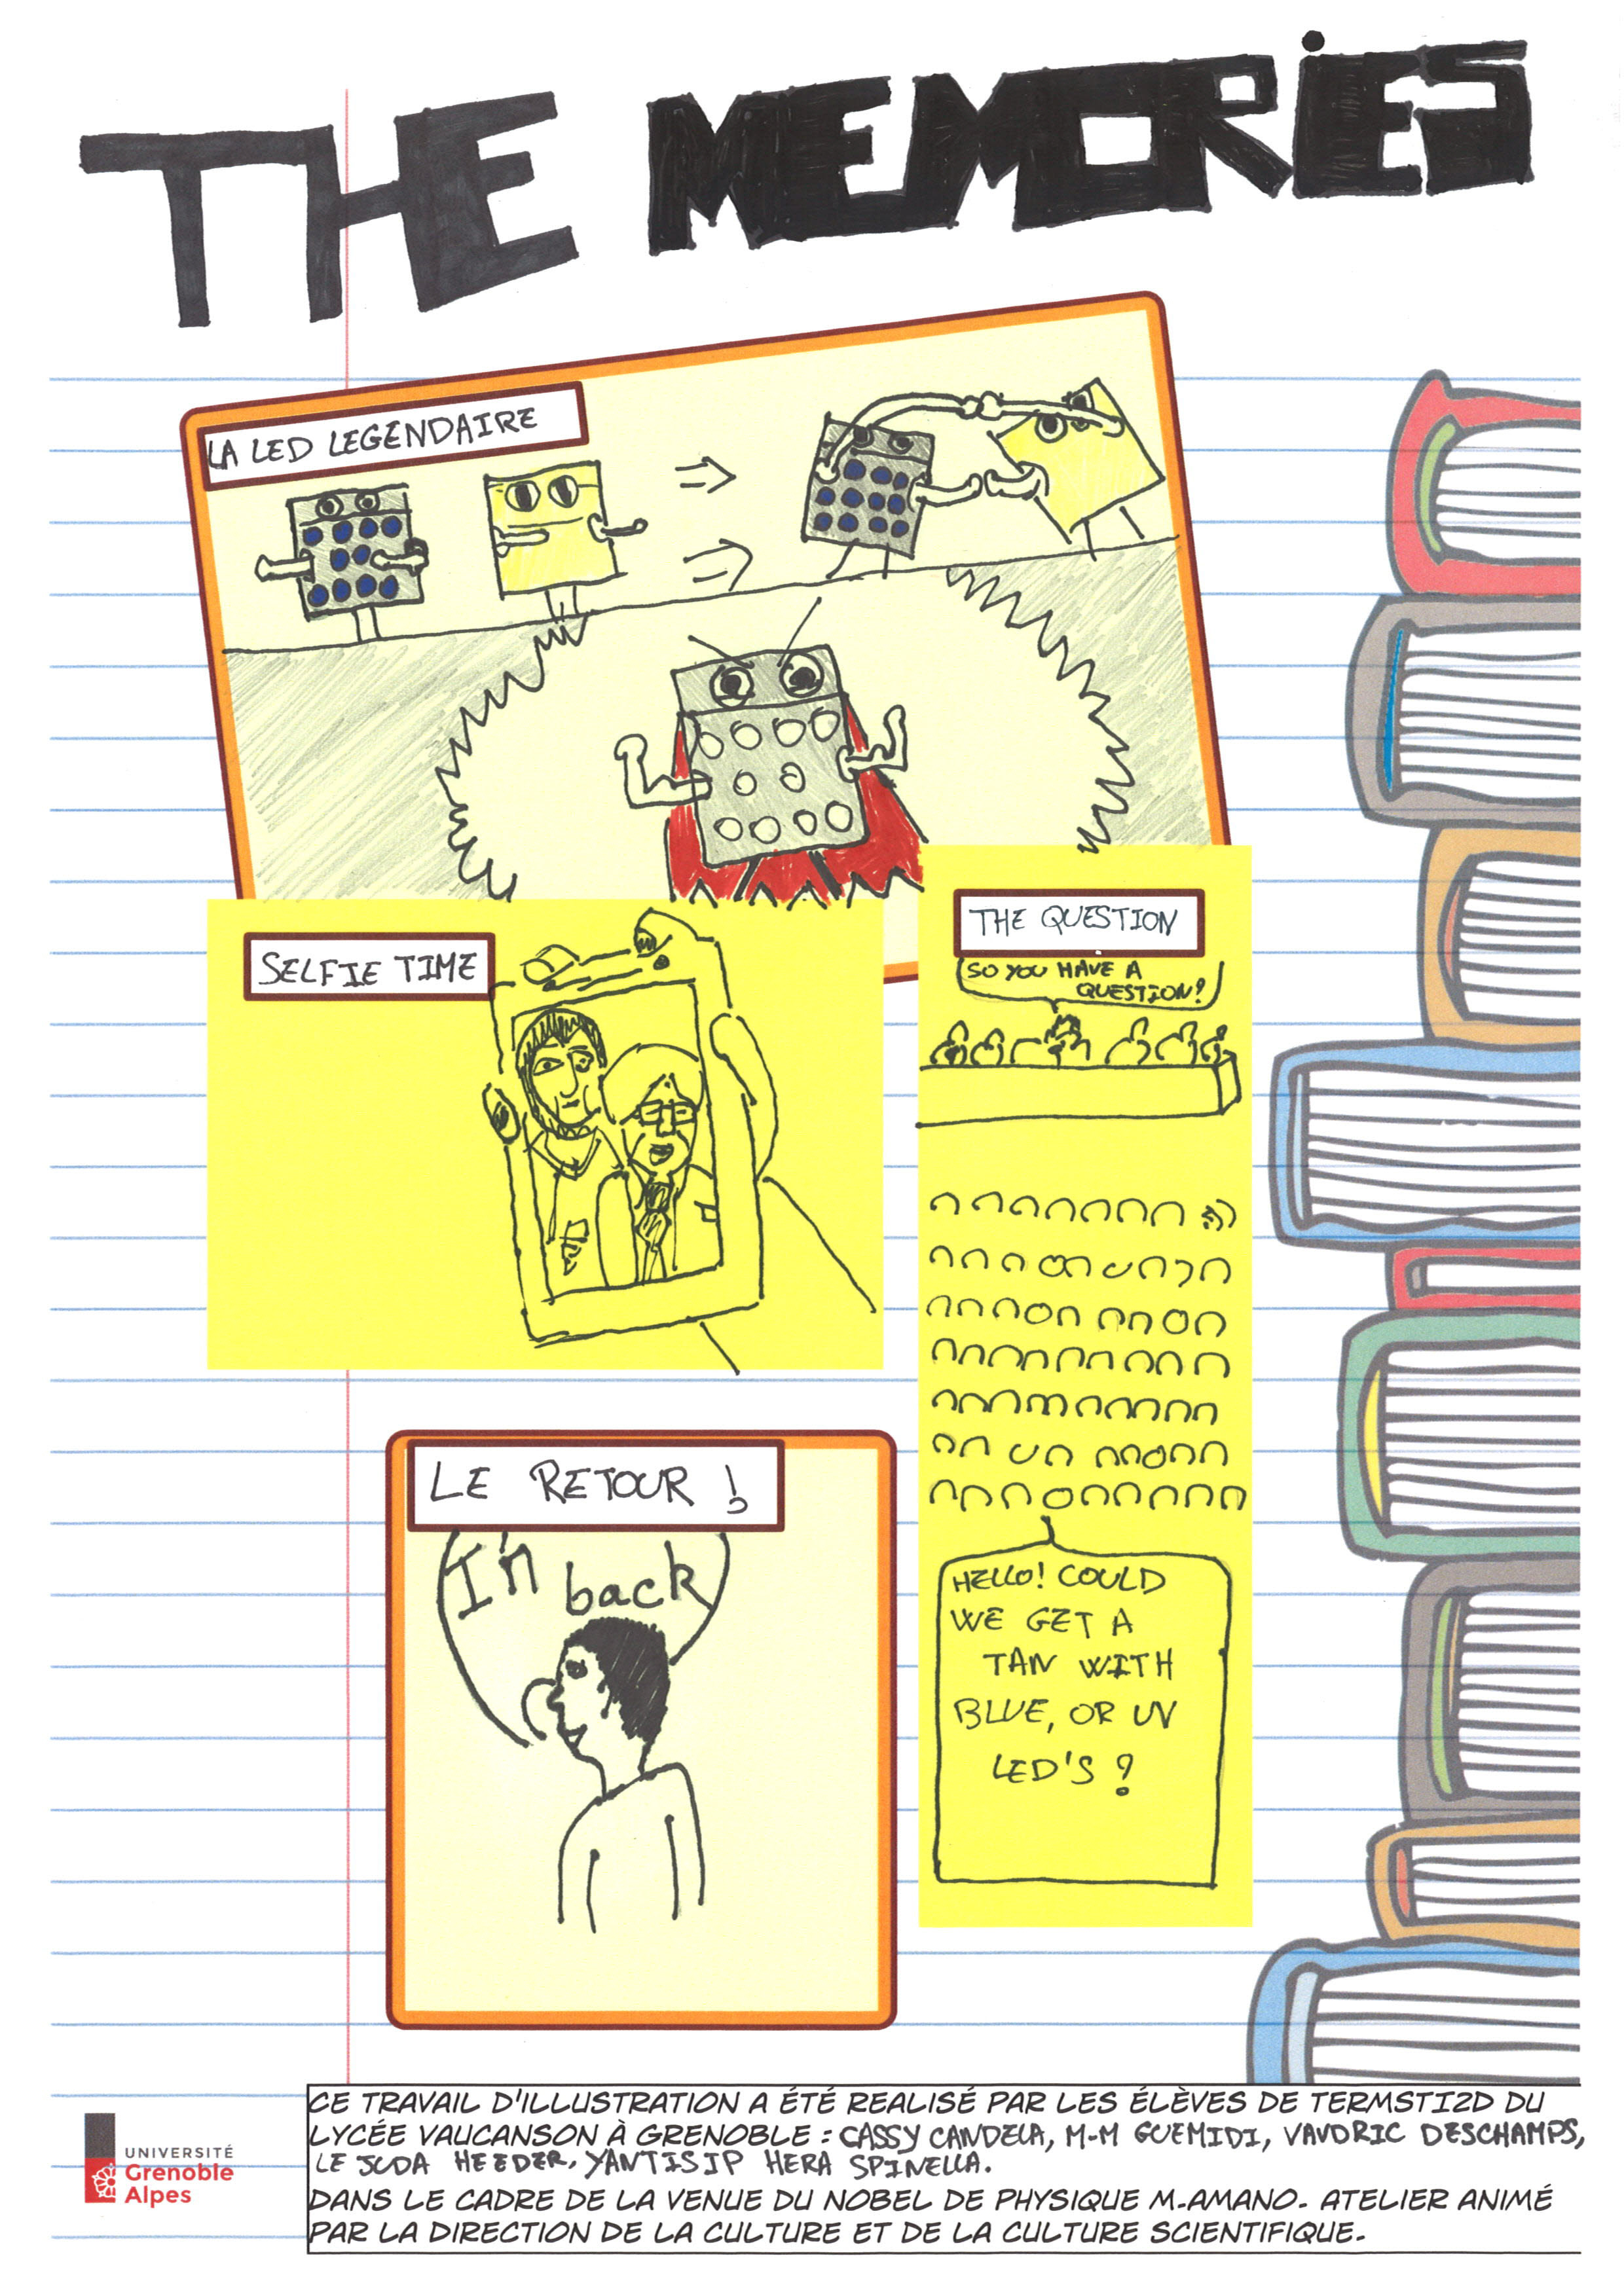 THE MEMORIES
LA LED LEGENDAIRE
SELFIE TIME
THE QUESTION
SO YOU HAVE A
QUESTION?
HELLO! COULD
WE GET A
TAN WITH
BLUE, OR UV
LED'S ?
LE RETOUR !
I'n back
CE TRAVAIL D'ILLUSTRATION A ÉTÉ REALISÉ PAR LES ÉLÈVES DE TERMSTI2D DU
LYCÉE VAUCANSON À GRENOBLE : CASSY CANDELA, M-M GUEMIDI, VAUDRIC DESCHAMPS,
LE JUDA HEEDER, YANTISIP HERA SPINELLA.
DANS LE CADRE DE LA VENUE DU NOBEL DE PHYSIQUE M.AMANO. ATELIER ANIMÉ
PAR LA DIRECTION DE LA CULTURE ET DE LA CULTURE SCIENTIFIQUE.
UNIVERSITÉ
Grenoble
Alpes